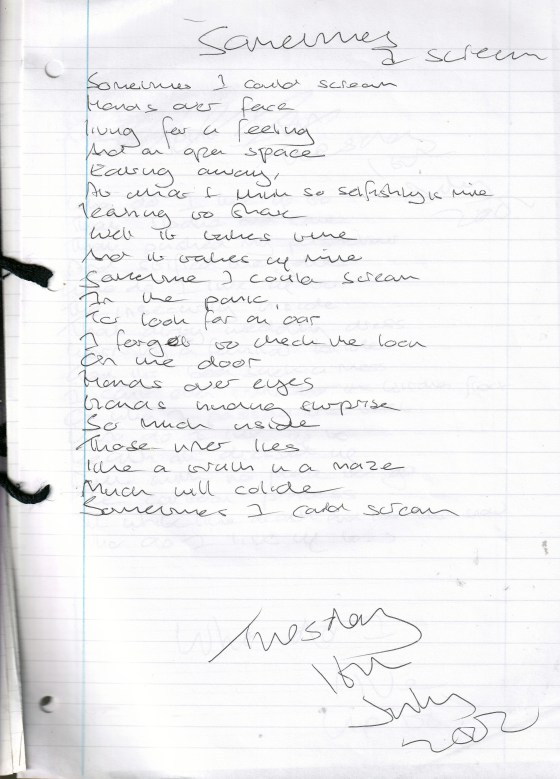 Sometimes
I scream
Sometimes I could scream
Hands over face
living for a feeling
And an open space
Eating away,
At what I think so selfishly is mine
learning to share
Well it takes time
And it takes up mine
Sometime I could scream
In the panic,
To look for an oar
I forget to check the lock
On the door
Hands over eyes
Hands hiding surprise
So much inside
Those inner lies
like a train in a maze
Much will colide
Sometimes I could scream
Tuesday
16th
July
2002